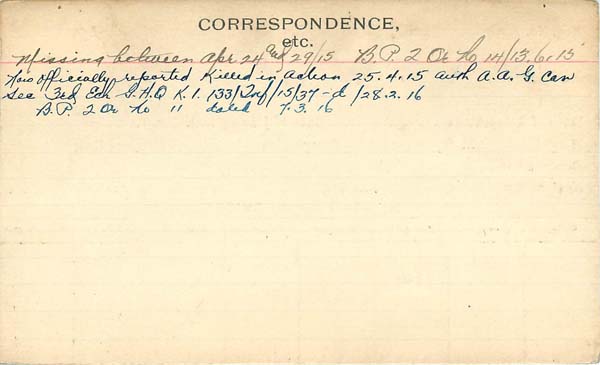 CORRESPONDENCE,
etc.
Missing between Apr 24 and 29/15 B.P. 2 Or No 14/13.6.15
Now officially reported Killed in action 25.4.15 auth A.A.G. Can
Sec 3rd Ech G.H.Q K.I. 133/Inf/15/37-d/28.2.16
B.P. 2 Or No 11 dated 7.3.16